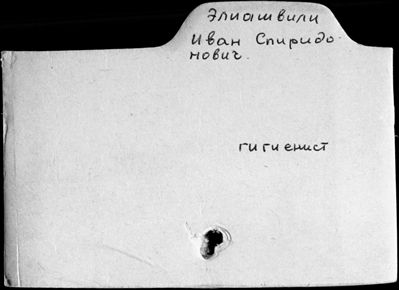 Элиашвили
Иван Спиридо-
нович.
гигиенист